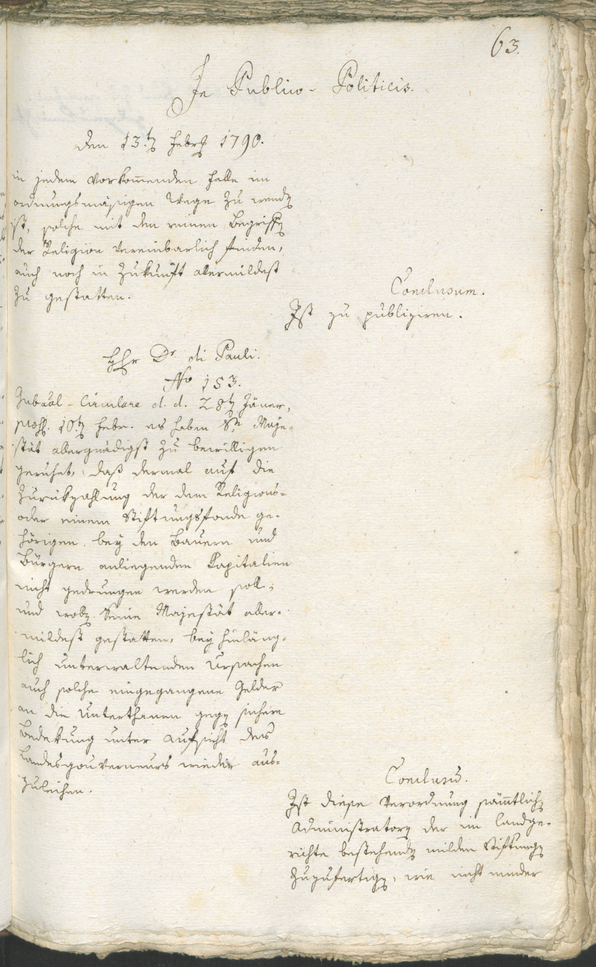 63.
In Publico-Politicis.
den 13t Febr 1790.
in jedem vorkommenden Falle im
ordnungsmäßigen Wege zu wenden
ist, solche mit den reinen Begriffen
der Religion vereinbarlich finden,
auch noch in Zukunft allermildest
zu gestatten.
Conclusum.
Ist zu publiziren.
Hr Dr di Pauli.
No 153.
Gubral-Circulare d. d. 28t Jäner,
10t Febr. es haben Se Maje-
stät allergnädigst zu bewilligen
geruhet, daß dermal auf die
Zurückzahlung der dem Religions-
oder einem Stiftungsfonde ge-
hörigen, bey den Bauern und
Bürgern anliegenden Kapitalien
nicht gedrungen werden soll,
und wollen Seine Majestät aller-
mildest gestatten, bey hinläng-
lich unterwaltenden Ursachen
auch solche eingegangene Gelder
an die Unterthanen gegen sichere
Bedekung unter Aufsicht des
Landesgouverneurs wieder aus-
zuleihen.
Conclusum.
Ist diese Verordnung sämmtlichen
Administratorn der im Landge-
richte bestehenden milden Stiftungen
zuzufertigen, wie nicht minder